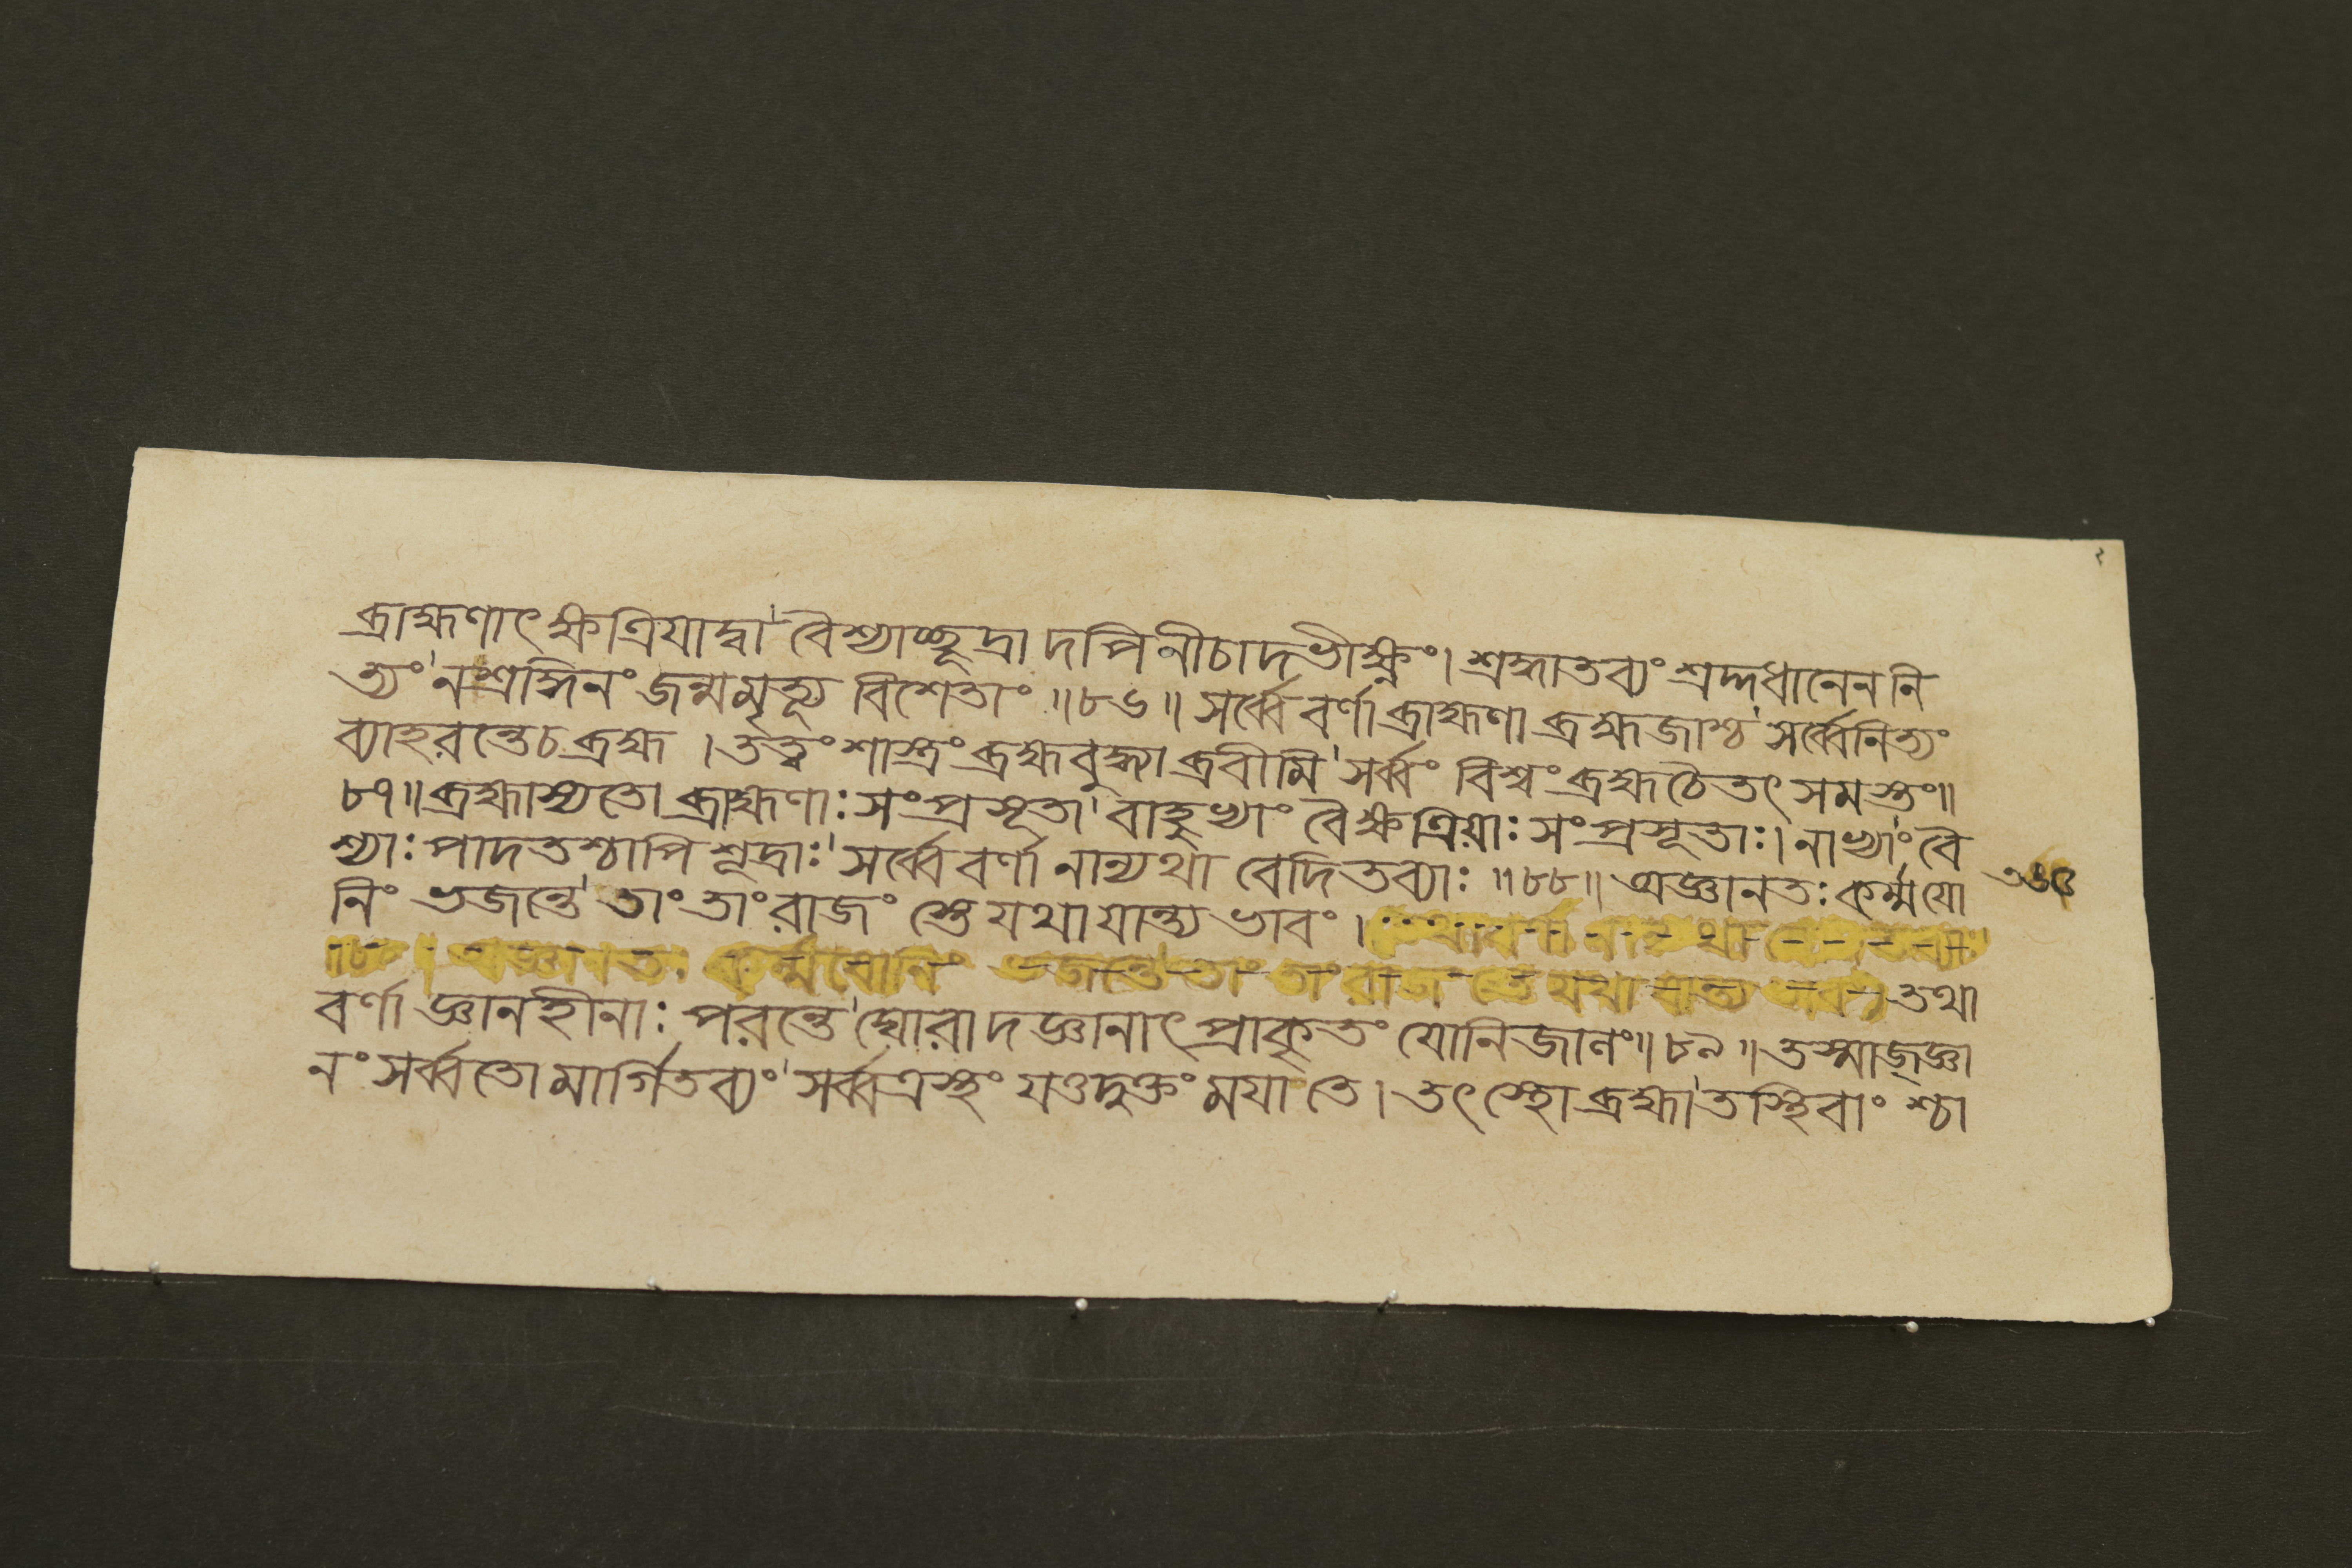 ২
ব্রাহ্মণাৎ ক্ষত্রিয়াদ্বা' বৈশ্যাচ্ছূদ্রাদপি নীচাদভীক্ষ্নং। শ্রদ্ধাতব্যং শ্রদ্দধানেন নি
ত্যং' নশ্রদ্ধিনং জন্মমৃত্যূ বিশেতাং ॥৮৬॥ সর্ব্বে বর্ণা ব্রাহ্মণা ব্রহ্মজাশ্চ' সর্ব্বেনিত্যং
ব্যাহরন্তেচ ব্রহ্ম । তত্ত্বং শাস্ত্রং ব্রহ্মবুদ্ধ্যা ব্রবীমি' সর্ব্বং বিশ্বং ব্রহ্মচৈতৎ সমস্তং॥
৮৭॥ ব্রহ্মাস্যতো ব্রাহ্মণাঃ সংপ্রসূতা' বাহুভ্যাং বৈ ক্ষত্রিয়াঃ সংপ্রসূতাঃ। নাভ্যাং' বৈ
শ্যাঃ পাদতশ্চাপি শূদ্রাঃ' সর্ব্বে বর্ণা নান্যথা বেদিতব্যাঃ ॥৮৮॥ অজ্ঞানতঃ কর্ম্মযো
নিং ভজন্তে' তাং তাং রাজং স্তে যথা যান্ত্য ভাবং ।
বর্ণা নান্যথা বেদিতব্যাঃ
॥৮৮॥ অজ্ঞানতঃ কর্ম্মযোনিং ভজন্তে' তাং তাং রাজং স্তে যথা যান্ত্য ভাবং । তথা
বর্ণা জ্ঞানহীনাঃ পরন্তে' ঘোরাদজ্ঞানাৎ প্রাকৃতং যোনিজানং॥ ৮৯ ॥ তস্মাজ্জ্ঞা
নং সর্ব্বতো মার্গিতব্যং' সর্ব্বত্রস্থং যওদুক্তং ময়া তে । তৎস্থো ব্রহ্মা' তস্থিবাং শ্চা